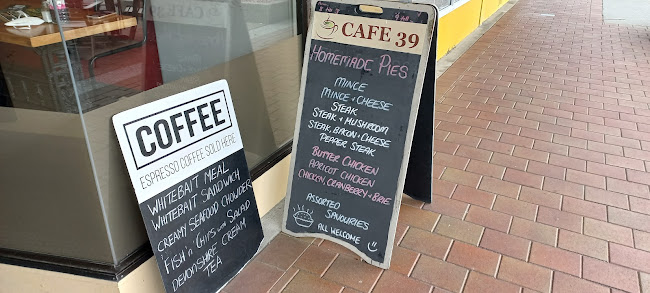 COFFEE
ESPRESSO COFFEE SOLD HERE
WHITEBAIT MEAL
WHITEBAIT SANDWICH
CREAMY SEAFOOD CHOWDER
"FISH 'n' CHIPS with SALAD
DEVONSHIRE CREAM
TEA
CAFE 39
HOMEMADE PIES
MINCE
MINCE + CHEESE
STEAK
STEAK + MUSHROOM
STEAK, BACON + CHEESE
PEPPER STEAK
BUTTER CHICKEN
APRICOT CHICKEN
CHICKEN, CRANBERRY + BRIE
ASSORTED
SAVOURIES
ALL WELCOME